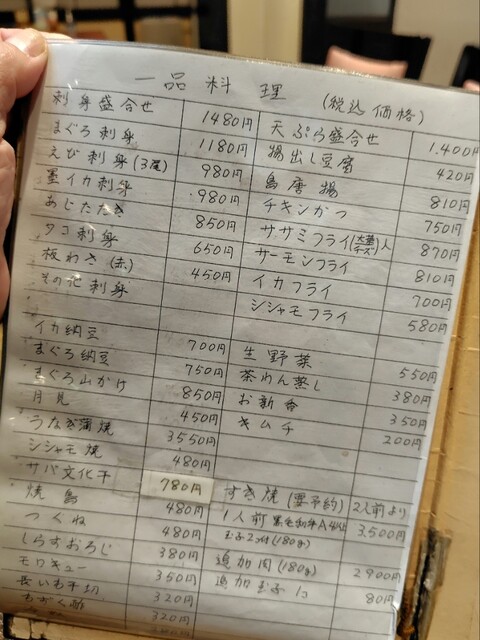 一品料理 (税込価格)
刺身盛合せ 1480円
まぐろ刺身 1180円
えび刺身(3尾) 980円
墨イカ刺身 980円
あじたたき 850円
タコ刺身 650円
板わさ(赤) 450円
その他刺身
イカ納豆 700円
まぐろ納豆 750円
まぐろ山かけ 850円
月見 450円
うなぎ蒲焼 3550円
シシャモ焼 480円
サバ文化干 780円
焼鳥 480円
つくね 480円
しらすおろし 380円
モロキュー 350円
長いも千切 320円
もずく酢 320円
天ぷら盛合せ 1,400円
揚出し豆腐 420円
鳥唐揚 810円
チキンかつ 750円
ササミフライ(大葉チーズ)入 870円
サーモンフライ 810円
イカフライ 700円
シシャモフライ 580円
生野菜 550円
茶わん蒸し 380円
お新香 350円
キムチ 200円
すき焼(要予約) 2人前より
1人前 黒毛和牛A4以上 3,500円
玉子2コ付(180g)
追加肉(180g) 2900円
追加玉子1コ 80円